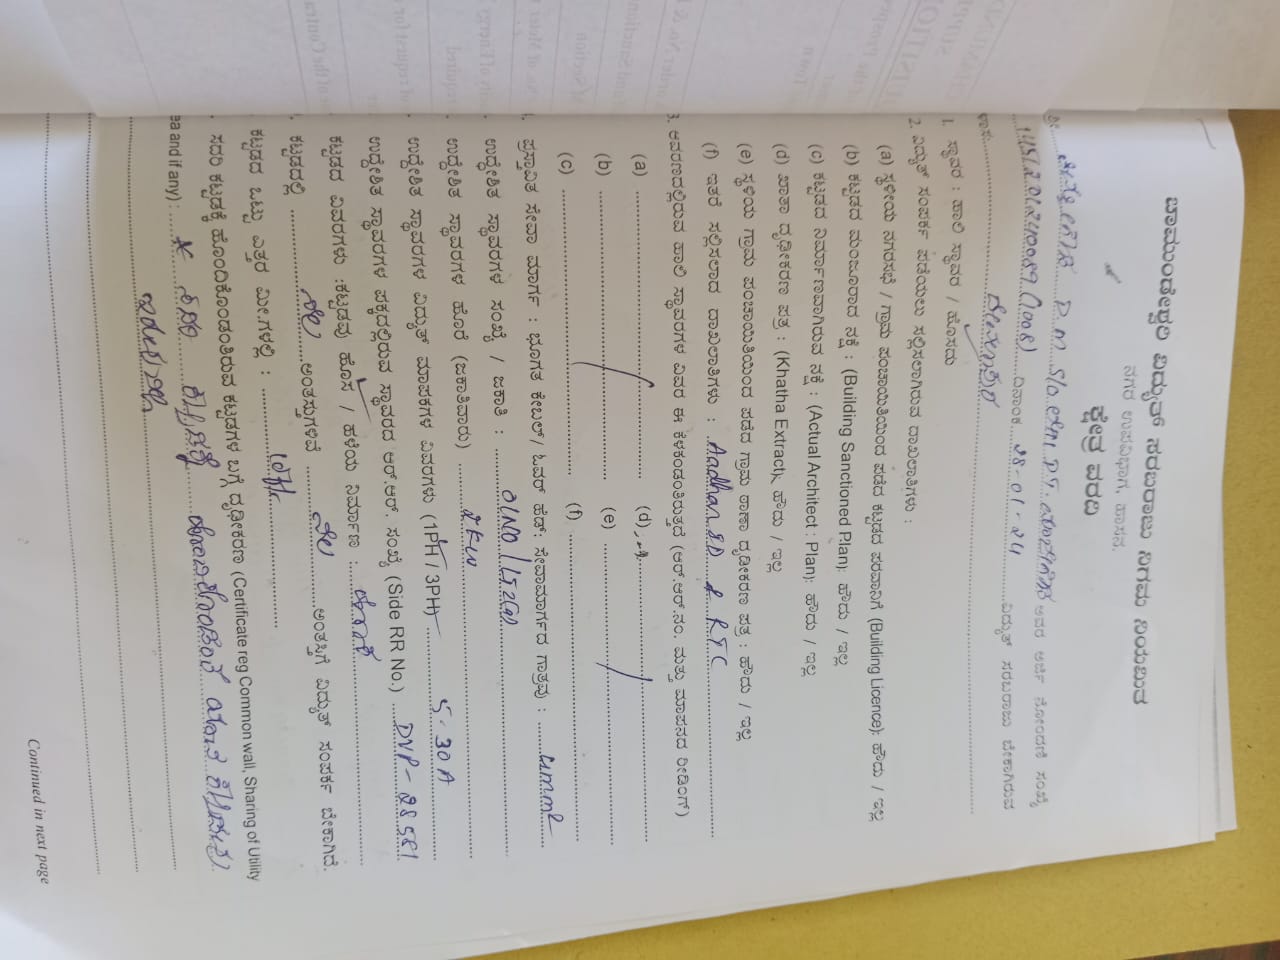 ಚಾಮುಂಡೇಶ್ವರಿ ವಿದ್ಯುತ್ ಸರಬರಾಜು ನಿಗಮ ನಿಯಮಿತ
ನಗರ ಉಪವಿಭಾಗ, ಹಾಸನ.
ಕ್ಷೇತ್ರ ವರದಿ
ಶ್ರೀ D M S/o P.T. ಅವರ ಅರ್ಜಿ ನೋಂದಣಿ ಸಂಖ್ಯೆ
(1008) ದಿನಾಂಕ 28-01-24 ವಿದ್ಯುತ್ ಸರಬರಾಜು ಬೇಕಾಗಿರುವ
1. ಸ್ಥಾವರ : ಹಾಲಿ ಸ್ಥಾವರ / ಹೊಸದು
2. ವಿದ್ಯುತ್ ಸಂಪರ್ಕ ಪಡೆಯಲು ಸಲ್ಲಿಸಲಾಗಿರುವ ದಾಖಲಾತಿಗಳು :
(a) ಸ್ಥಳೀಯ ನಗರಸಭೆ / ಗ್ರಾಮ ಪಂಚಾಯಿತಿಯಿಂದ ಪಡೆದ ಕಟ್ಟಡದ ಪರವಾನಿಗೆ (Building Licence); ಹೌದು / ಇಲ್ಲ
(b) ಕಟ್ಟಡದ ಮಂಜೂರಾದ ನಕ್ಷೆ : (Building Sanctioned Plan); ಹೌದು / ಇಲ್ಲ
(c) ಕಟ್ಟಡದ ನಿರ್ಮಾಣವಾಗಿರುವ ನಕ್ಷೆ : (Actual Architect : Plan); ಹೌದು / ಇಲ್ಲ
(d) ಖಾತಾ ದೃಢೀಕರಣ ಪತ್ರ : (Khatha Extract); ಹೌದು / ಇಲ್ಲ
(e) ಸ್ಥಳೀಯ ಗ್ರಾಮ ಪಂಚಾಯಿತಿಯಿಂದ ಪಡೆದ ಗ್ರಾಮ ಠಾಣಾ ದೃಢೀಕರಣ ಪತ್ರ : ಹೌದು / ಇಲ್ಲ
(f) ಇತರೆ ಸಲ್ಲಿಸಲಾದ ದಾಖಲಾತಿಗಳು : Aadhar ID & RTC
3. ಆವರಣದಲ್ಲಿರುವ ಹಾಲಿ ಸ್ಥಾವರಗಳ ವಿವರ ಈ ಕೆಳಕಂಡಂತಿರುತ್ತದೆ (ಆರ್.ಆರ್.ನಂ. ಮತ್ತು ಮಾಪನದ ರೀಡಿಂಗ್)
(a) (d)
(b) (e)
(c) (f)
ಪ್ರಸ್ತಾವಿತ ಸೇವಾ ಮಾರ್ಗ : ಭೂಗತ ಕೇಬಲ್/ ಓವರ್ ಹೆಡ್; ಸೇವಾಮಾರ್ಗದ ಗಾತ್ರವು : 4mm²
ಉದ್ದೇಶಿತ ಸ್ಥಾವರಗಳ ಸಂಖ್ಯೆ / ಜಕಾತಿ :
ಉದ್ದೇಶಿತ ಸ್ಥಾವರಗಳ ಹೊರೆ (ಜಕಾತಿವಾರು) 2kw
ಉದ್ದೇಶಿತ ಸ್ಥಾವರಗಳ ವಿದ್ಯುತ್ ಮಾಪಕಗಳ ವಿವರಗಳು (1PH / 3PH) 5-30A
ಉದ್ದೇಶಿತ ಸ್ಥಾವರಗಳ ಪಕ್ಕದಲ್ಲಿರುವ ಸ್ಥಾವರದ ಆರ್.ಆರ್. ಸಂಖ್ಯೆ (Side RR No.) DVP-28581
ಕಟ್ಟಡದ ವಿವರಗಳು :ಕಟ್ಟಡವು ಹೊಸ / ಹಳೆಯ ನಿರ್ಮಾಣ :
ಕಟ್ಟಡದಲ್ಲಿ ನೆಲ ಅಂತಸ್ತುಗಳಿವೆ ನೆಲ ಅಂತಸ್ತಿಗೆ ವಿದ್ಯುತ್ ಸಂಪರ್ಕ ಬೇಕಾಗಿದೆ.
ಕಟ್ಟಡದ ಒಟ್ಟು ಎತ್ತರ ಮೀ.ಗಳಲ್ಲಿ :
ಸದರಿ ಕಟ್ಟಡಕ್ಕೆ ಹೊಂದಿಕೊಂಡಂತಿರುವ ಕಟ್ಟಡಗಳ ಬಗ್ಗೆ ದೃಢೀಕರಣ (Certificate reg Common wall, Sharing of Utility
ea and if any) : * ಸದರಿ ಕಟ್ಟಡಕ್ಕೆ ಹೊಂದಿಕೊಂಡಂತೆ ಯಾವುದೇ ಕಟ್ಟಡಗಳು
ಇರುವುದಿಲ್ಲ
Continued in next page